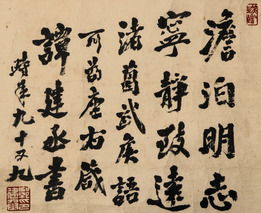 澹泊明志
寧靜致遠
諸葛武侯語
可為座右箴
譚建丞書
時年九十又九